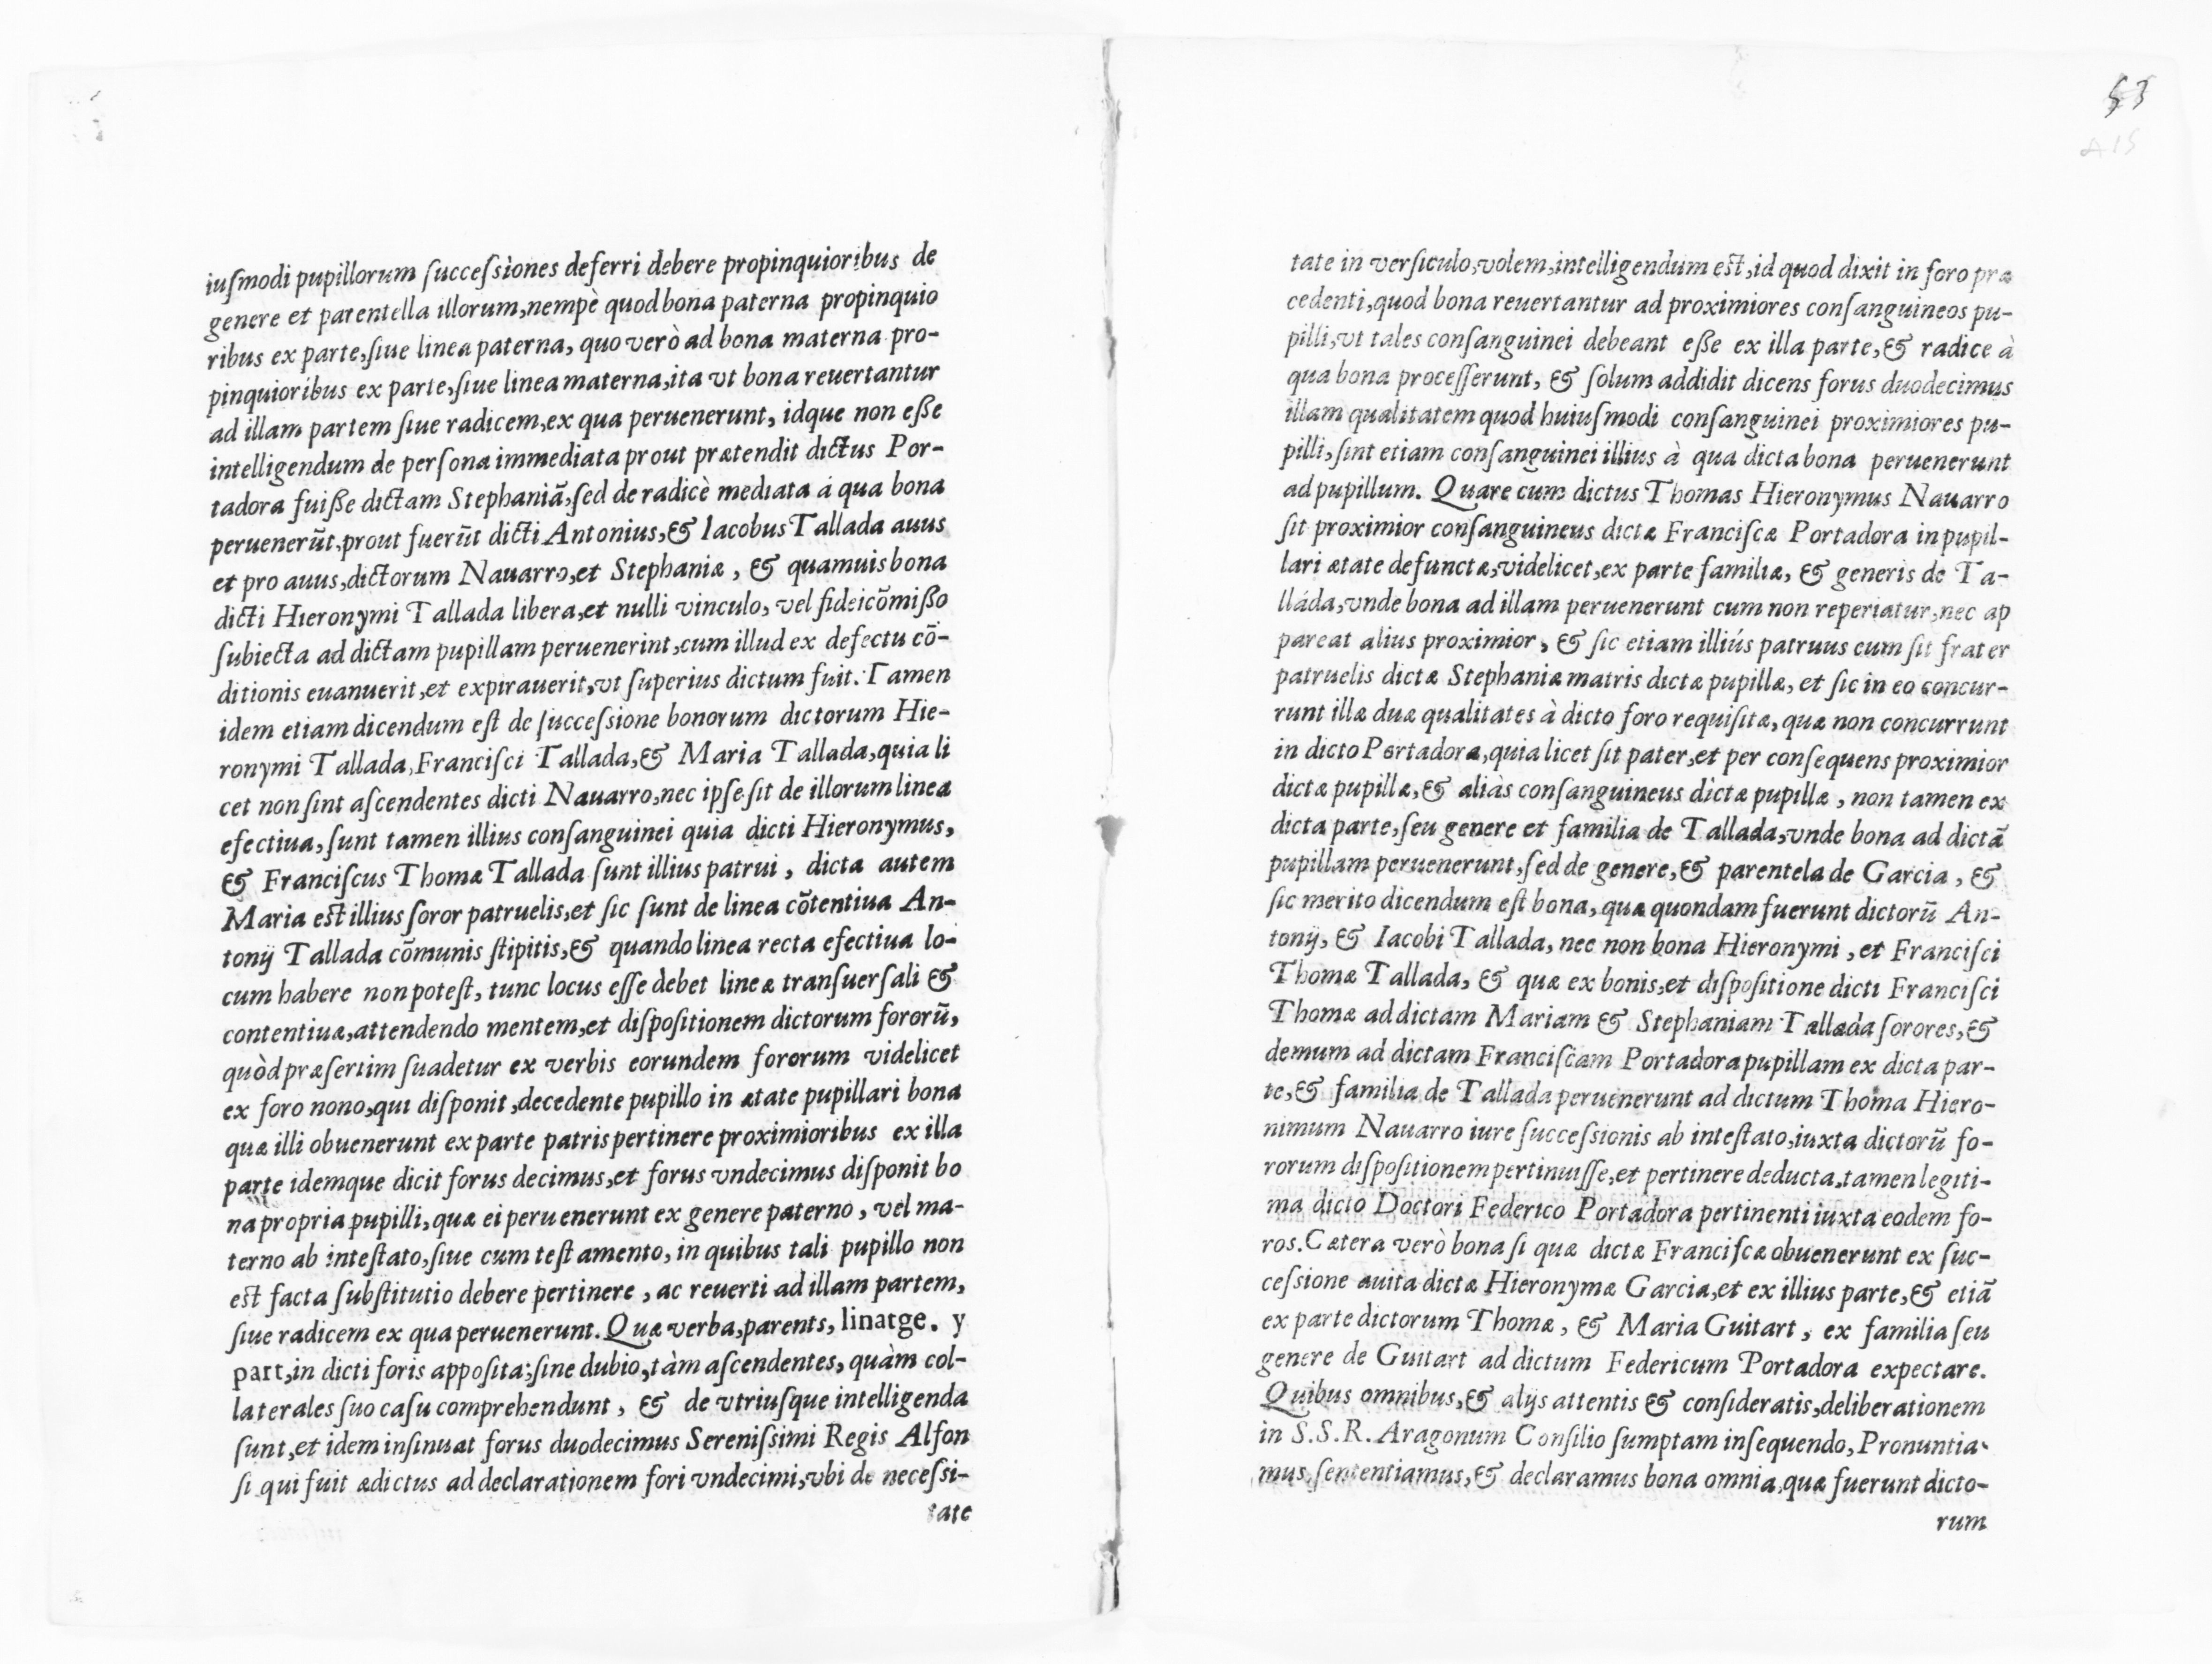 iuſmodi pupillorum ſucceſsiones deferri debere propinquioribus de
genere et parentella illorum,nempè quod bona paterna propinquio
ribus ex parte,ſiue linea paterna, quo verò ad bona materna pro-
pinquioribus ex parte,ſiue linea materna,ita vt bona reuertantur
ad illam partem ſiue radicem,ex qua peruenerunt, idque non eſße
intelligendum de perſona immediata prout prætendit dictus Por-
tadora fuiſße dictam Stephaniã,ſed de radicè mediata á qua bona
peruenerũt,prout fuerũt dicti Antonius,& Iacobus Tallada auus
et pro auus,dictorum Nauarro,et Stephaniæ, & quamuis bona
dicti Hieronymi Tallada libera,et nulli vinculo, vel fideicõmißo
ſubiecta ad dictam pupillam peruenerint,cum illud ex defectu cõ-
ditionis euanuerit,et expirauerit,vt ſuperius dictum fuit. Tamen
idem etiam dicendum eſt de ſucceſsione bonorum dictorum Hie-
ronymi Tallada,Franciſci Tallada,& Maria Tallada,quia li
cet non ſint aſcendentes dicti Nauarro,nec ipſe ſit de illorum linea
efectiua, ſunt tamen illius conſanguinei quia dicti Hieronymus,
& Franciſcus Thomæ Tallada ſunt illius patrui, dicta autem
Maria eſt illius ſoror patruelis,et ſic ſunt de linea cõtentiua An-
tonij Tallada cõmunis ſtipitis,& quando linea recta efectiua lo-
cum habere non poteſt, tunc locus eſſe debet lineæ tranſuerſali &
contentiuæ,attendendo mentem,et diſpoſitionem dictorum fororũ,
quòd præſertim ſuadetur ex verbis eorundem fororum videlicet
ex foro nono,qui diſponit,decedente pupillo in ætate pupillari bona
quæ illi obuenerunt ex parte patris pertinere proximioribus ex illa
parte idemque dicit forus decimus,et forus vndecimus diſponit bo
na propria pupilli,quæ ei peruenerunt ex genere paterno, vel ma-
terno ab inteſtato,ſiue cum teſtamento, in quibus tali pupillo non
eſt facta ſubſtitutio debere pertinere, ac reuerti ad illam partem,
ſiue radicem ex qua peruenerunt. Quæ verba,parents, linatge. y
part,in dicti foris appoſita;ſine dubio,tàm aſcendentes, quàm col-
laterales ſuo caſu comprehendunt, & de vtriuſque intelligenda
ſunt,et idem inſinuat forus duodecimus Sereniſsimi Regis Alfon
ſi qui fuit ædictus ad declarationem fori vndecimi,vbi de neceſsi-
tate
53
A15
tate in verſiculo,volem,intelligendum eſt,id quod dixit in foro præ
cedenti,quod bona reuertantur ad proximiores conſanguineos pu-
pilli,vt tales conſanguinei debeant eſße ex illa parte,& radice à
qua bona proceſſerunt, & ſolum addidit dicens forus duodecimus
illam qualitatem quod huiuſmodi conſanguinei proximiores pu-
pilli,ſint etiam conſanguinei illius à qua dicta bona peruenerunt
ad pupillum. Quare cum dictus Thomas Hieronymus Nauarro
ſit proximior conſanguineus dictæ Franciſcæ Portadora in pupil-
lari ætate defunctæ,videlicet,ex parte familiæ, & generis de Ta-
lláda,vnde bona ad illam peruenerunt cum non reperiatur,nec ap
pareat alius proximior, & ſic etiam illiús patruus cum ſit frater
patruelis dictæ Stephaniæ matris dictæ pupillæ, et ſic in eo concur-
runt illæ duæ qualitates à dicto foro requiſitæ, quæ non concurrunt
in dicto Portadora,quia licet ſit pater,et per conſequens proximior
dictæ pupillæ,& aliàs conſanguineus dictæ pupillæ, non tamen ex
dicta parte,ſeu genere et familia de Tallada,vnde bona ad dictã
pupillam peruenerunt,ſed de genere,& parentela de Garcia, &
ſic merito dicendum eſt bona, quæ quondam fuerunt dictorũ An-
tonij, & Iacobi Tallada, nec non bona Hieronymi, et Franciſci
Thomæ Tallada, & quæ ex bonis,et diſpoſitione dicti Franciſci
Thomæ ad dictam Mariam & Stephaniam Tallada ſorores,&
demum ad dictam Franciſcam Portadora pupillam ex dicta par-
te,& familia de Tallada peruenerunt ad dictum Thoma Hiero-
nimum Nauarro iure ſucceſsionis ab inteſtato,iuxta dictorũ fo-
rorum diſpoſitionem pertinuiſſe,et pertinere deducta,tamen legiti-
ma dicto Doctori Federico Portadora pertinenti iuxta eodem fo-
ros. Cætera verò bona ſi quæ dictæ Franciſcæ obuenerunt ex ſuc-
ceſsione auita dictæ Hieronymæ Garcia,et ex illius parte,& etiã
ex parte dictorum Thomæ, & Maria Guitart, ex familia ſeu
genere de Guitart ad dictum Federicum Portadora expectare.
Quibus omnibus,& alijs attentis & conſideratis,deliberationem
in S.S.R. Aragonum Conſilio ſumptam inſequendo, Pronuntia-
mus,ſententiamus,& declaramus bona omnia,quæ fuerunt dicto-
rum